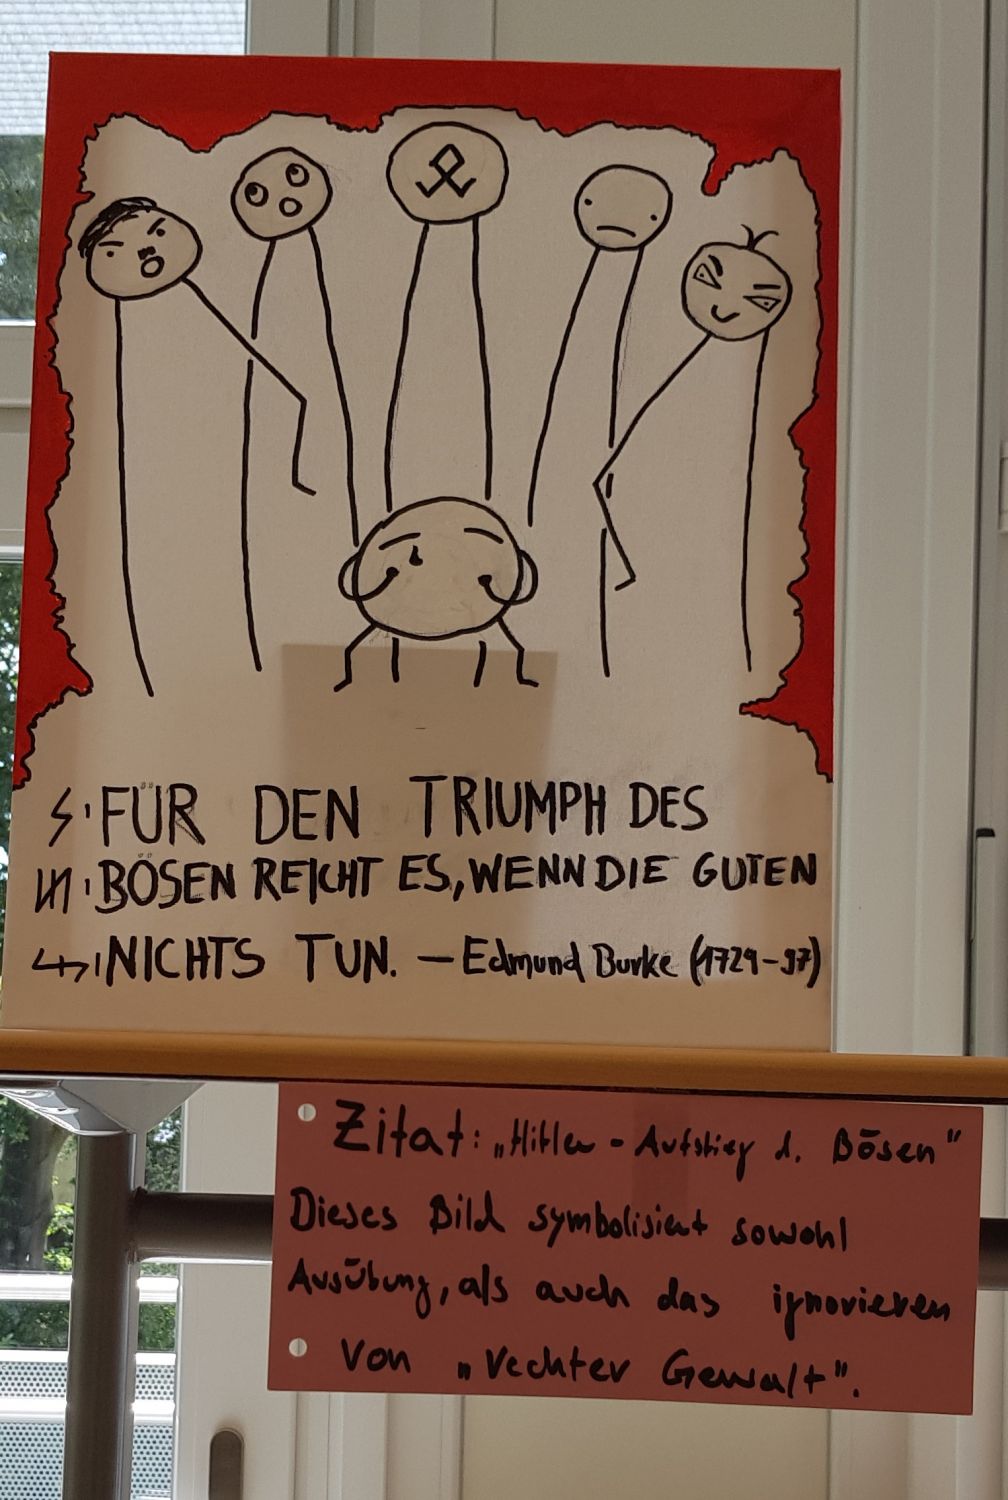 FÜR DEN TRIUMPH DES
BÖSEN REICHT ES, WENN DIE GUTEN
NICHTS TUN. — Edmund Burke (1729-97)
Zitat: „Hitler - Aufstieg d. Bösen"
Dieses Bild symbolisiert sowohl
Ausübung, als auch das ignorieren
von „rechter Gewalt".